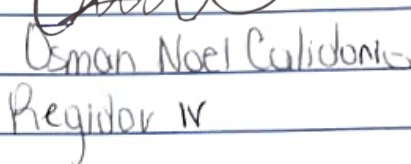 Osman Noel Calidonio
Regidor IV